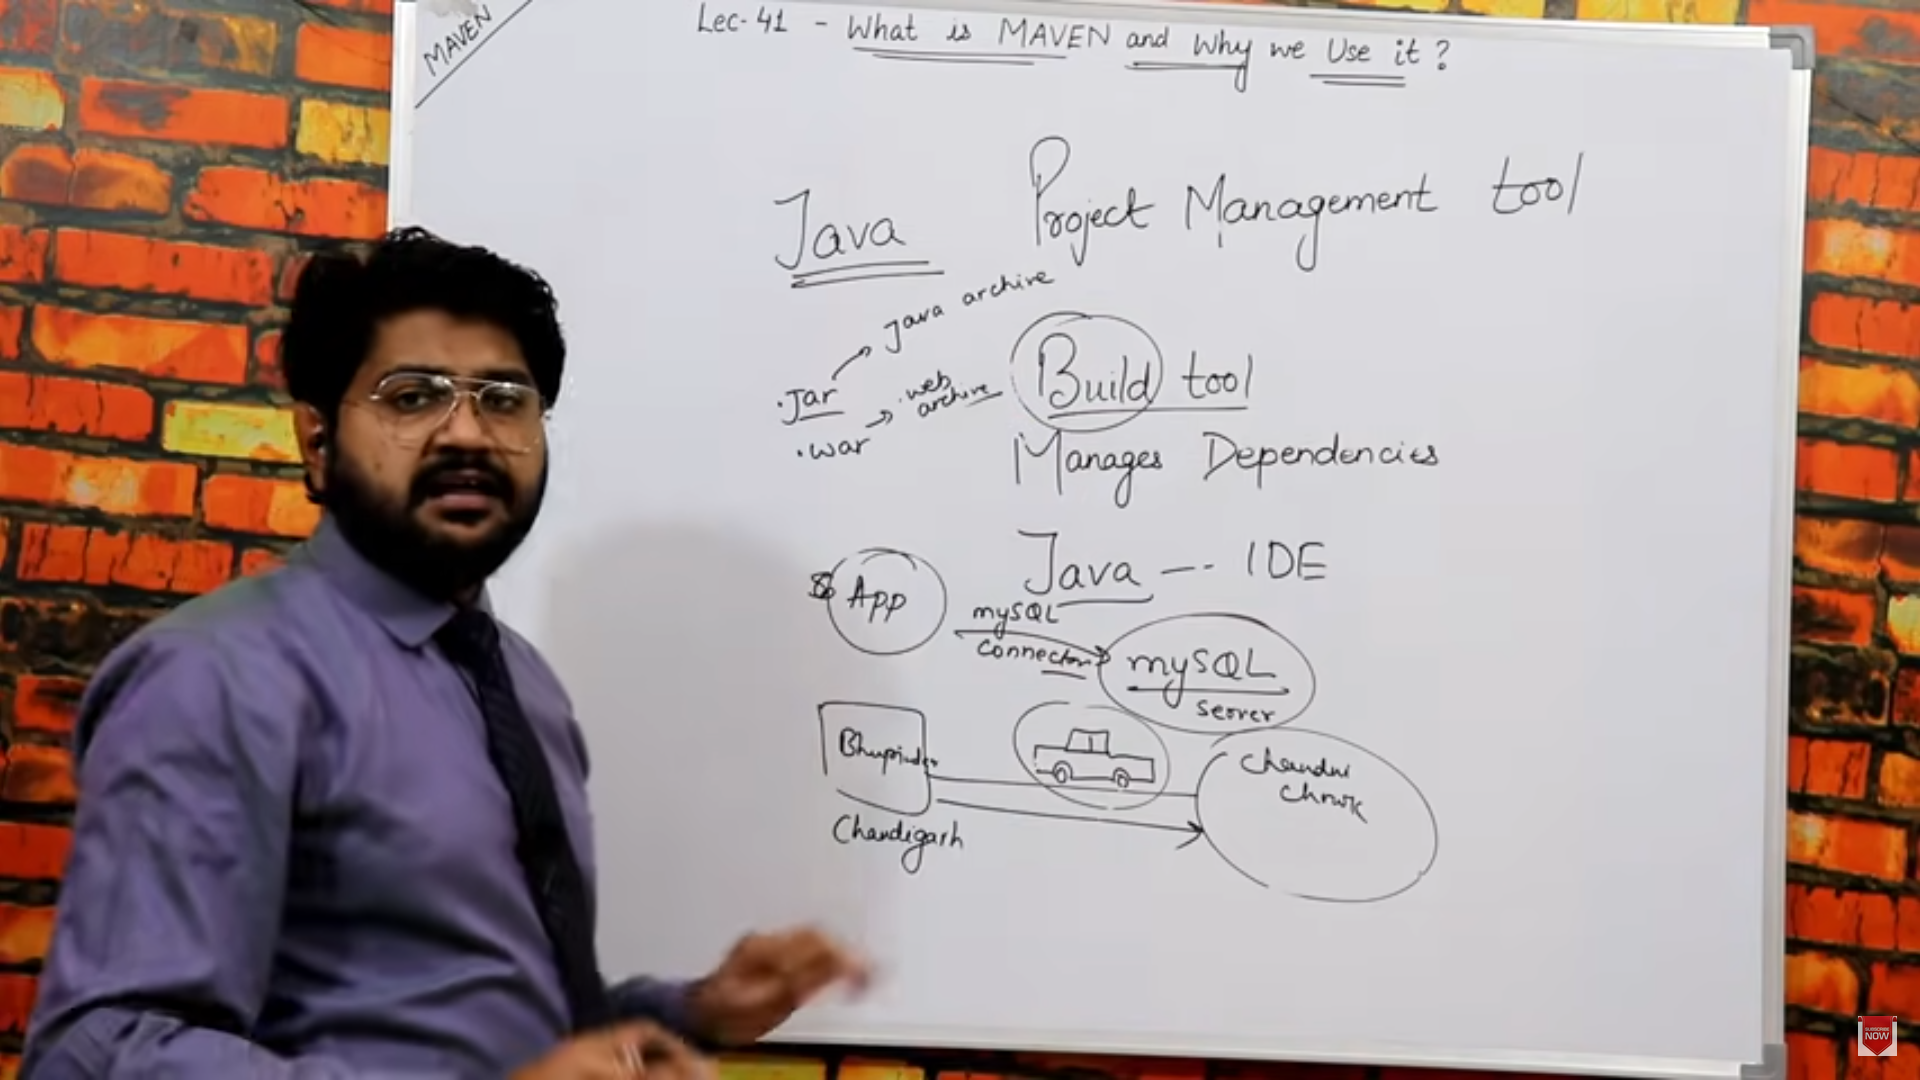 MAVEN
Lec-41 - What is MAVEN and Why we Use it?
Java
Project Management tool
Java archive
.Jar
web archive
.war
Build tool
Manages Dependencies
Java --- IDE
App
mySQL
Connector
mySQL
Server
Bhupinder
Chandni
Chowk
Chandigarh
SUBSCRIBE
NOW